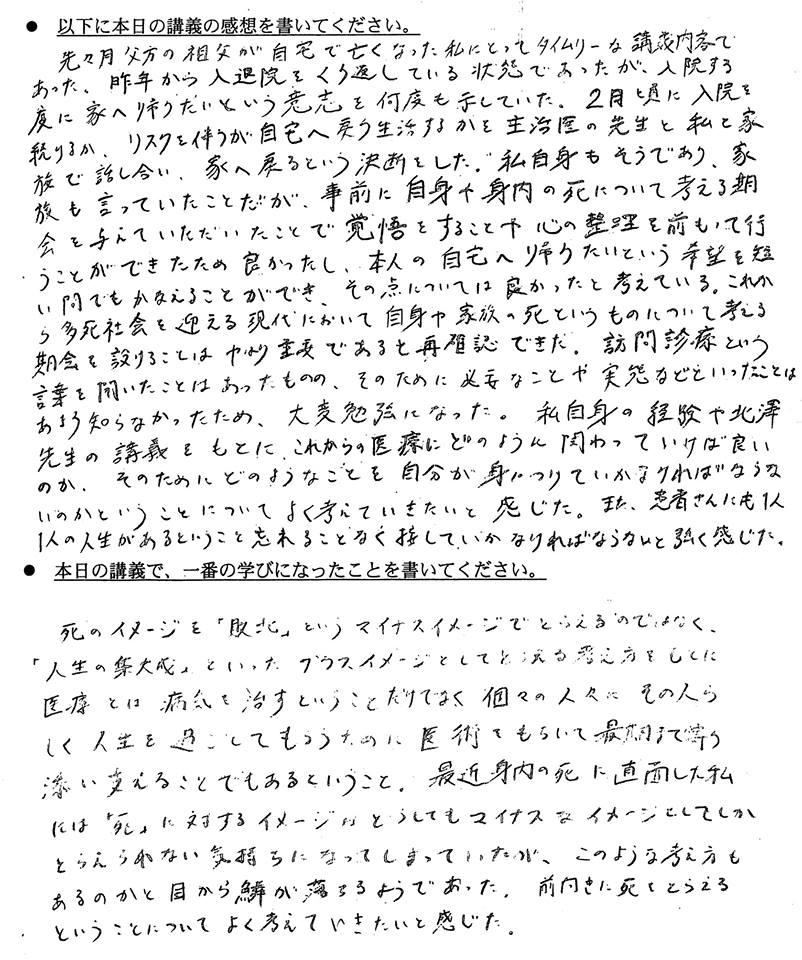 ● 以下に本日の講義の感想を書いてください。
先々月父方の祖父が自宅で亡くなった私にとってタイムリーな講義内容で
あった。昨年から入退院をくり返している状態であったが、入院する
度に家へ帰りたいという意志を何度も示していた。2月頃に入院を
続けるか、リスクを伴うが自宅へ戻り生活するかを主治医の先生と私と家
族で話し合い、家へ戻るという決断をした。私自身もそうであり、家
族も言っていたことだが、事前に自身や身内の死について考える期
会を与えていただいたことで覚悟をすることや心の整理を前もって行
うことができたため良かったし、本人の自宅へ帰りたいという希望を短
い間でもかなえることができ、その点については良かったと考えている。これか
ら多死社会を迎える現代において自身や家族の死というものについて考える
期会を設けることはやはり重要であると再確認できた。訪問診療という
言葉を聞いたことはあったものの、そのために必要なことや実態などといったことは
あまり知らなかったため、大変勉強になった。私自身の経験や北澤
先生の講義をもとに、これからの医療にどのように関わっていけば良い
のか、そのためにどのようなことを自分が身につけていかなければならな
いのかということについてよく考えていきたいと感じた。また、患者さんにも1人
1人の人生があるということ忘れることなく接していかなければならないと強く感じた。
● 本日の講義で、一番の学びになったことを書いてください。
死のイメージを「敗北」というマイナスイメージでとらえるのではなく、
「人生の集大成」といったプラスイメージとしてとらえる考え方をもとに
医療とは病気を治すということだけでなく個々の人々にその人ら
しく人生を過ごしてもらうために医術をもちいて最期まで寄り
添い支えることでもあるということ。最近身内の死に直面した私
には「死」に対するイメージがどうしてもマイナスなイメージとしてしか
とらえられない気持ちになってしまっていたが、このような考え方も
あるのかと目から鱗が落ちるようであった。前向きに死をとらえる
ということについてよく考えていきたいと感じた。